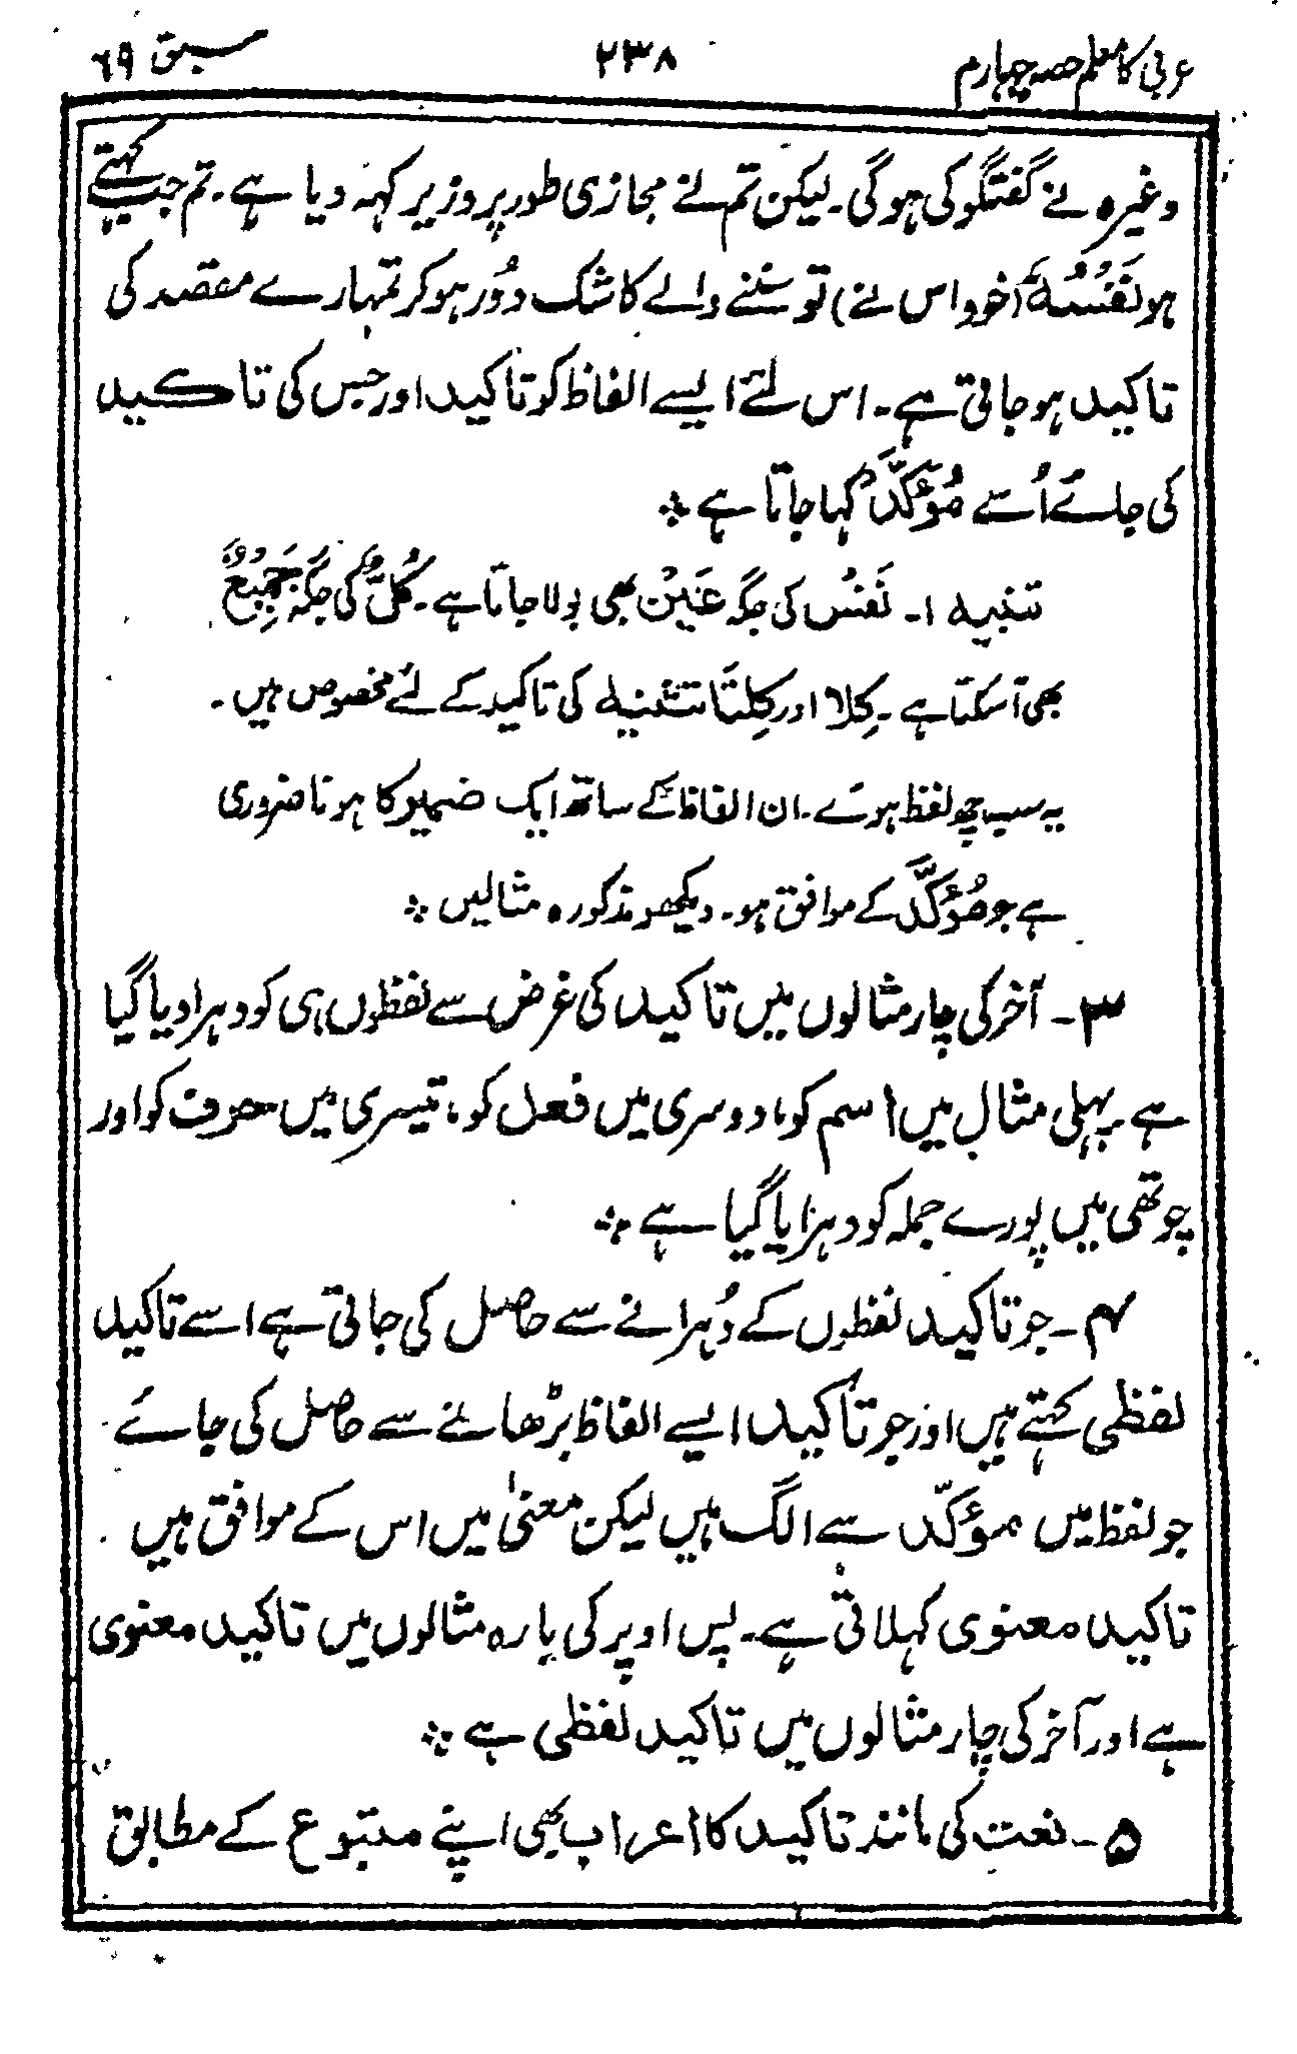 عربی کا معلم حصہ چہارم ۲۳۸ سبق ۶۹
وغیرہ نے گفتگو کی ہوگی۔ لیکن تم نے مجازی طور پر وزیر کہہ دیا ہے۔ تم جب کہتے
ہو نَفْسُهٗ (خود اس نے) تو سننے والے کا شک دُور ہو کر تمہارے مقصد کی
تاکید ہو جاتی ہے۔ اس لئے ایسے الفاظ کو تاکید اور جس کی تاکید
کی جائے اُسے مُؤَکَّد کہا جاتا ہے ۞
تنبیہ ۱۔ نَفْسُ کی جگہ عَيْن بھی بولا جاتا ہے۔ كُلّ کی جگہ جَمِيْعٌ
بھی آسکتا ہے۔ كِلَا اور كِلْتَا تثنیہ کی تاکید کے لئے مخصوص ہیں۔
یہ سب چھ لفظ ہوئے۔ ان الفاظ کے ساتھ ایک ضمیر کا ہونا ضروری
ہے جو مُؤَکَّد کے موافق ہو۔ دیکھو مذکورہ مثالیں ۞
۳۔ آخر کی چار مثالوں میں تاکید کی غرض سے لفظوں ہی کو دہرا دیا گیا
ہے۔ پہلی مثال میں اسم کو، دوسری میں فعل کو، تیسری میں حرف کو اور
چوتھی میں پورے جملہ کو دہرایا گیا ہے ۞
۴۔ جو تاکید لفظوں کے دُہرانے سے حاصل کی جاتی ہے اسے تاکید
لفظی کہتے ہیں اور جو تاکید ایسے الفاظ بڑھانے سے حاصل کی جائے
جو لفظ میں مؤکّد سے الگ ہیں لیکن معنیٰ میں اس کے موافق ہیں
تاکید معنوی کہلاتی ہے۔ پس اوپر کی بارہ مثالوں میں تاکید معنوی
ہے اور آخر کی چار مثالوں میں تاکید لفظی ہے ۞
۵۔ نعت کی مانند تاکید کا اعراب بھی اپنے متبوع کے مطابق